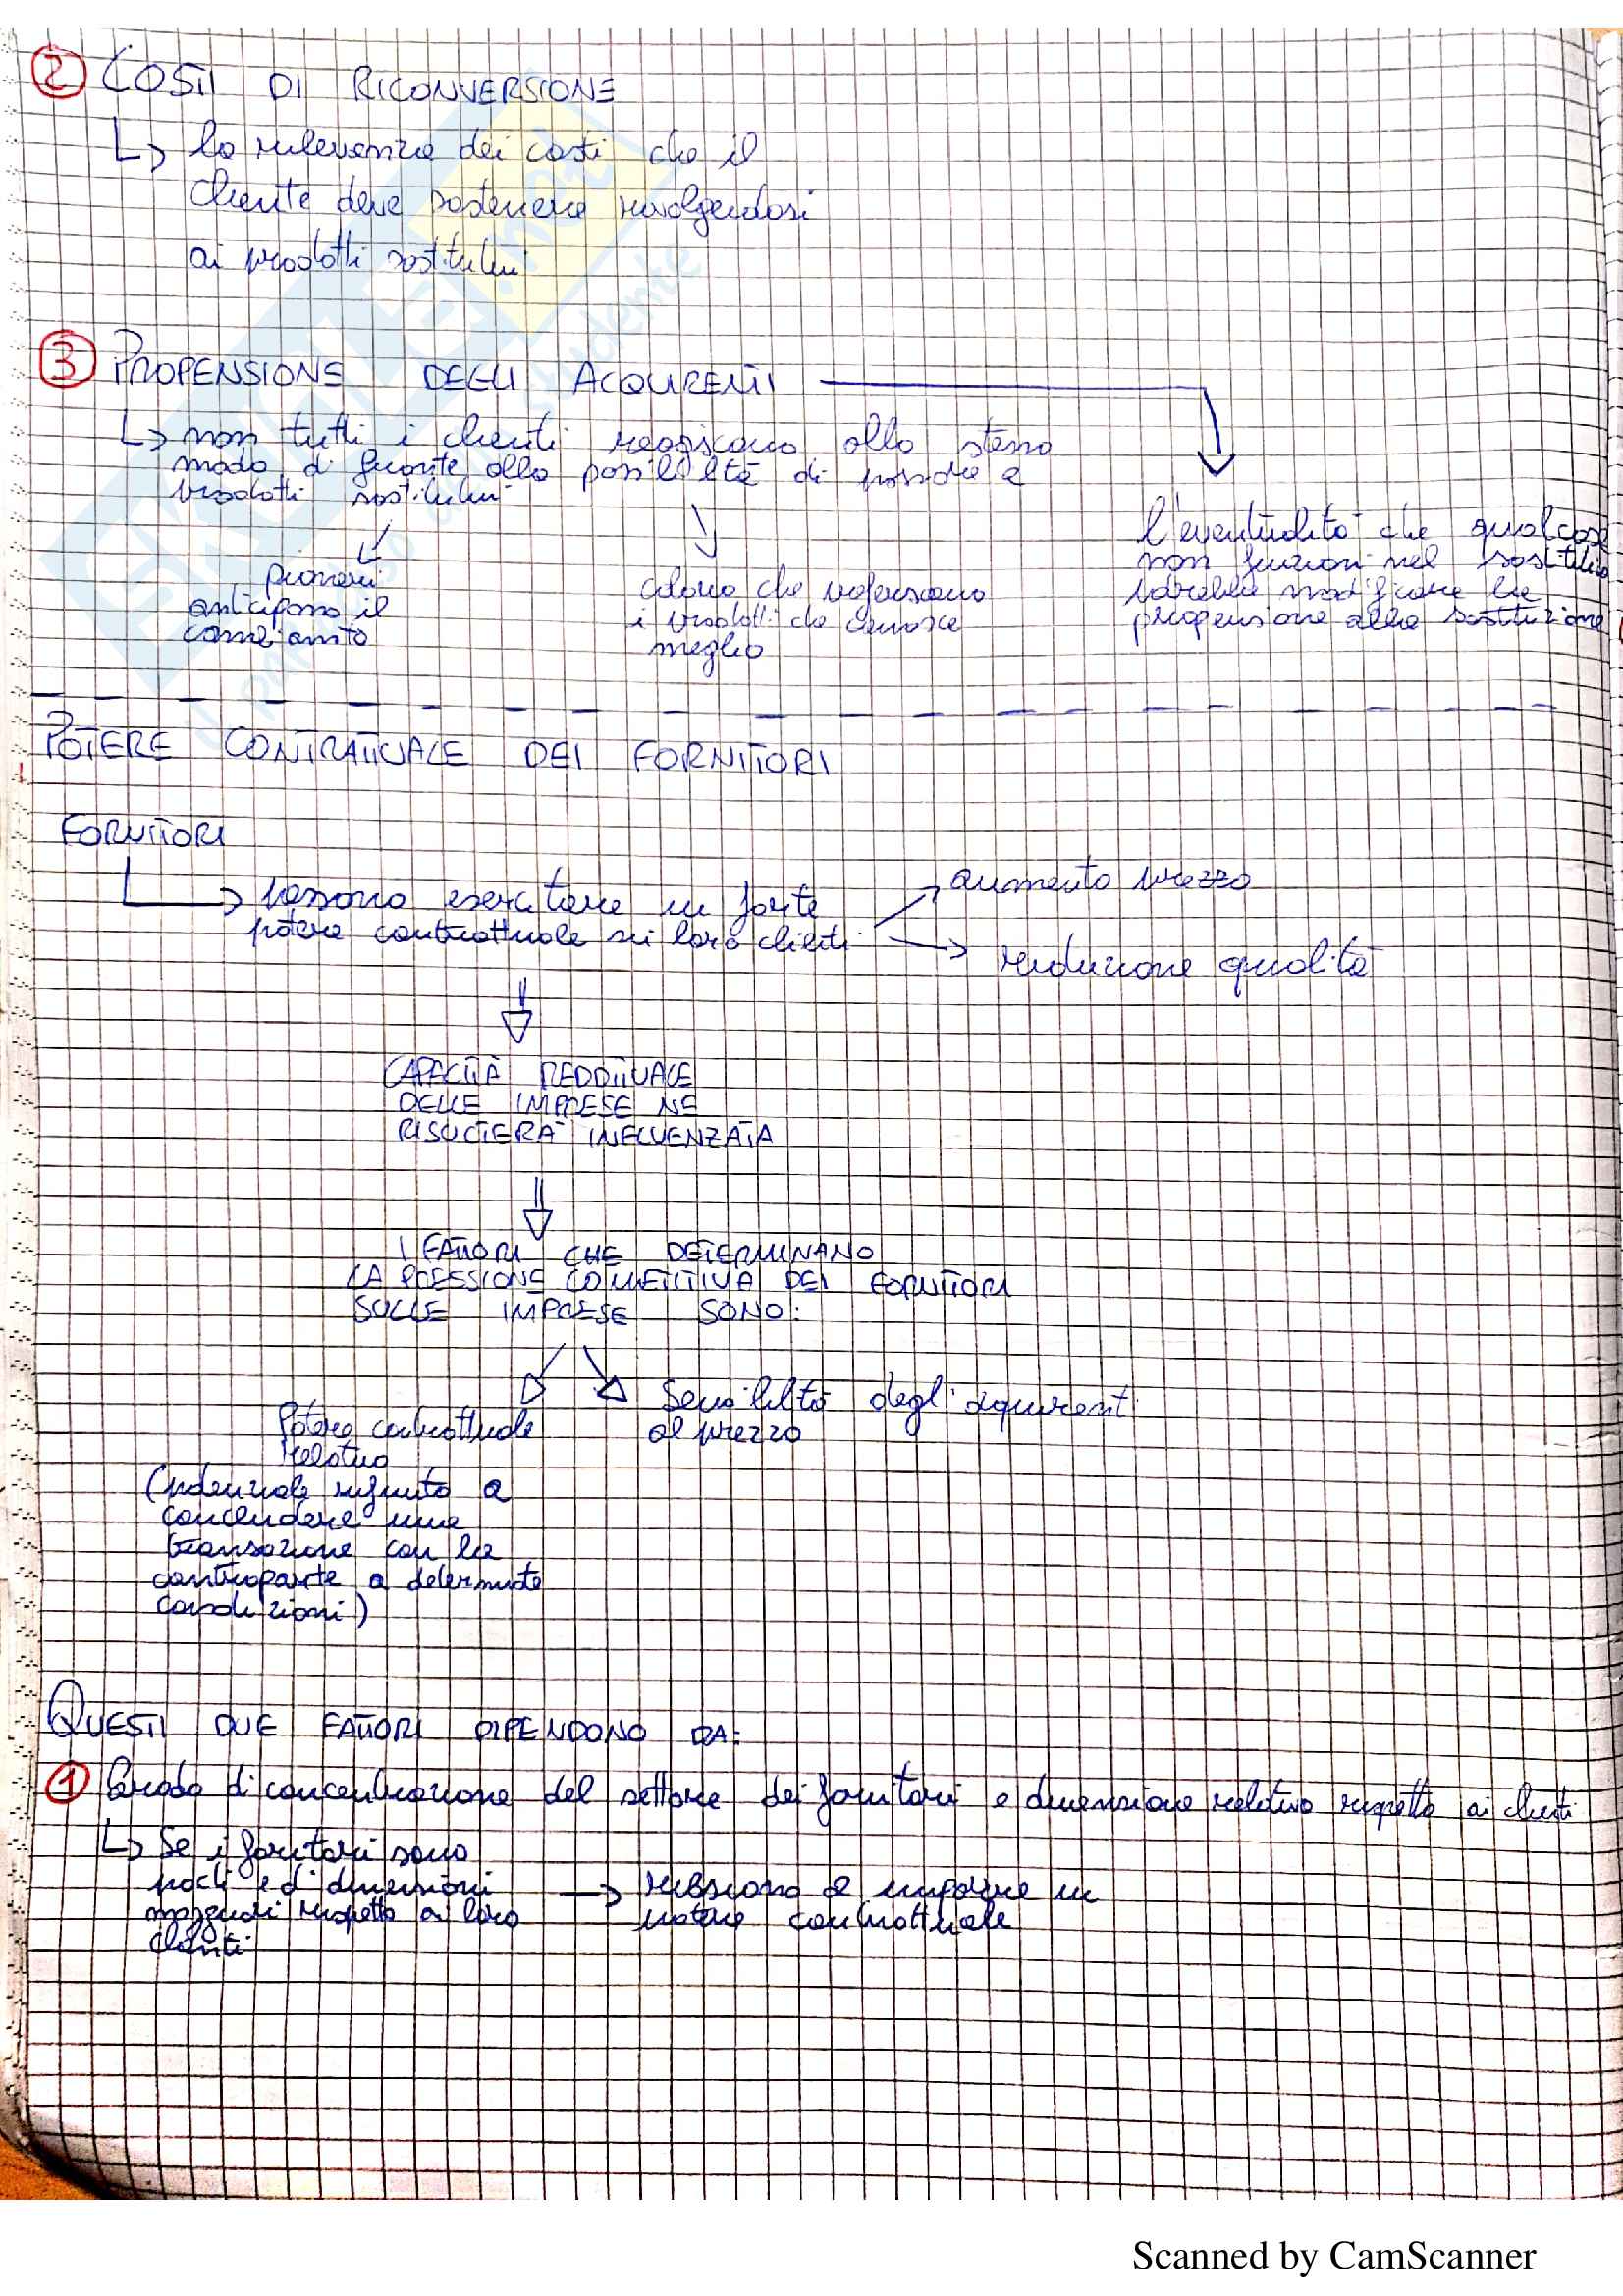 2 COSTI DI RICONVERSIONE
↳ la rilevanza dei costi che il
cliente deve sostenere rivolgendosi
ai prodotti sostitutivi
3 PROPENSIONE DEGLI ACQUIRENTI
↳ non tutti i clienti reagiscono allo stesso
modo di fronte alla possibilità di passare a
prodotti sostitutivi
pionieri
anticipano il
cambiamento
coloro che preferiscono
i prodotti che conosce
meglio
l'eventualità che qualcosa
non funzioni nel sostituto
potrebbe modificare la
propensione alla sostituzione
POTERE CONTRATTUALE DEI FORNITORI
FORNITORI
→ possono esercitare un forte
potere contrattuale sui loro clienti
→ aumento prezzo
→ riduzione qualità
CAPACITÀ REDDITUALE
DELLE IMPRESE NE
RISULTERÀ INFLUENZATA
I FATTORI CHE DETERMINANO
LA PRESSIONE COMPETITIVA DEI FORNITORI
SULLE IMPRESE SONO:
Potere contrattuale
relativo
(potenziale rifiuto a
concludere una
transazione con la
controparte a determinate
condizioni)
Sensibilità degli aquirenti
al prezzo
QUESTI DUE FATTORI DIPENDONO DA:
1 Grado di concentrazione del settore dei fornitori e dimensione relativa rispetto ai clienti
↳ Se i fornitori sono
pochi e di dimensioni
maggiori rispetto ai loro
clienti
→ riescono a imporre un
potere contrattuale
Scanned by CamScanner